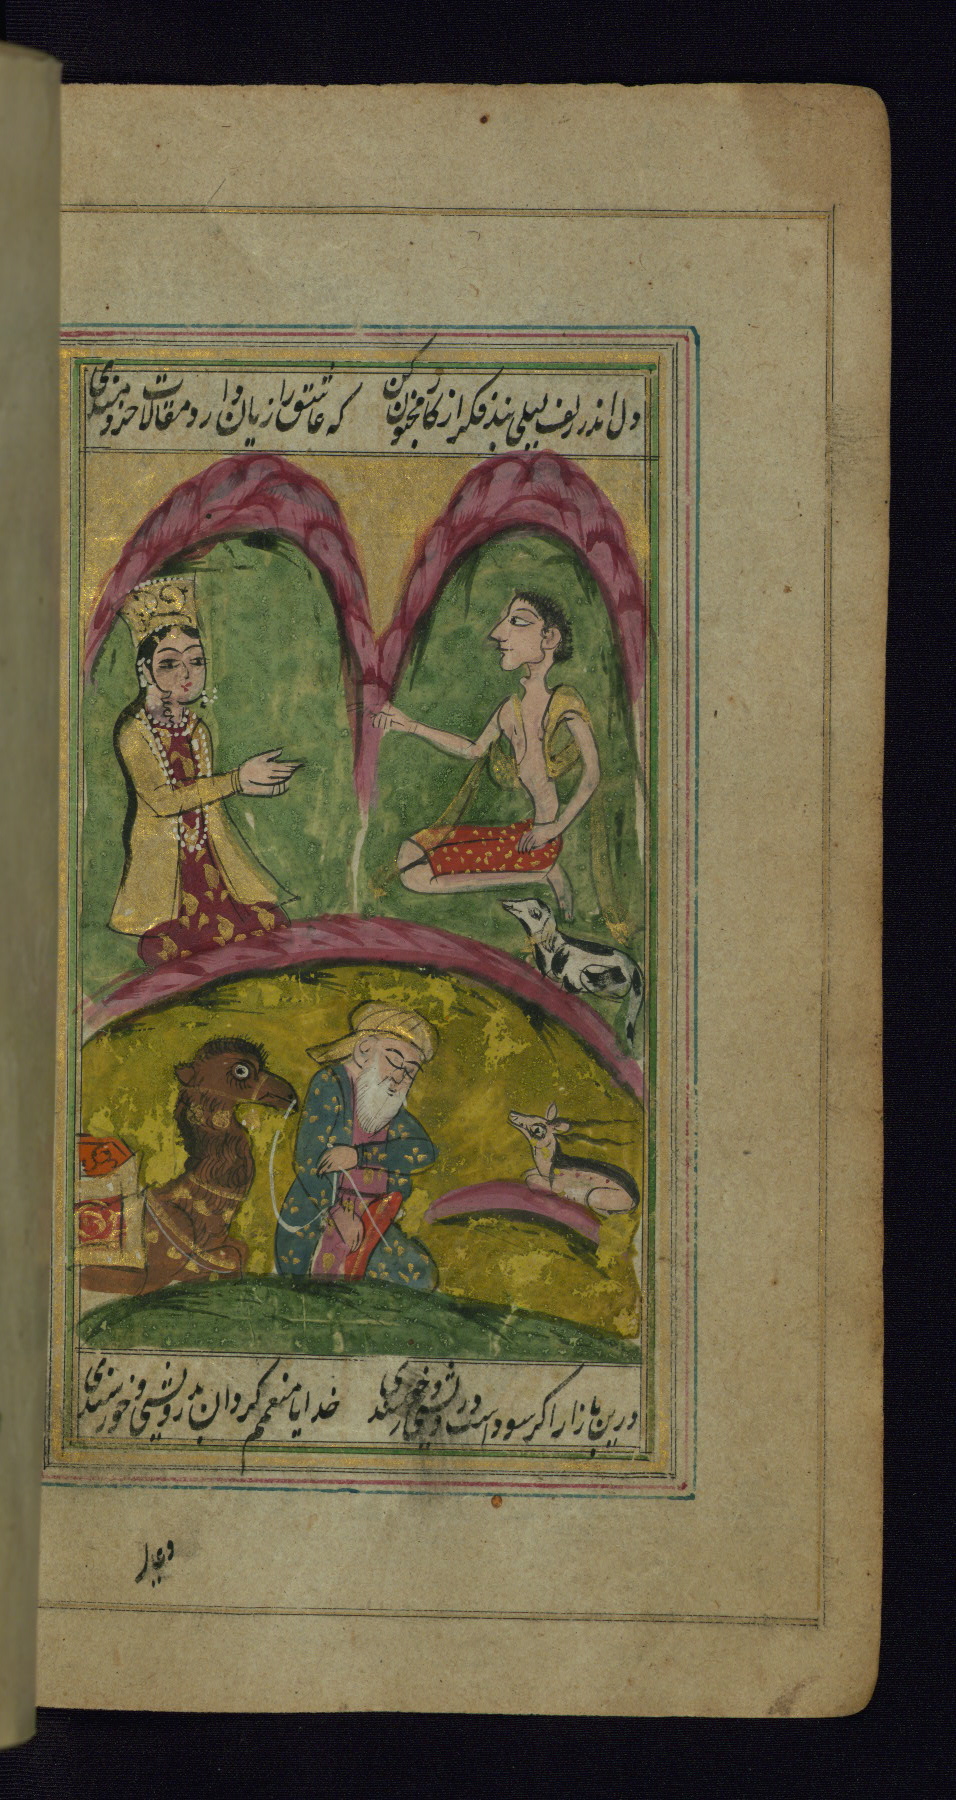 دل اندر زلف لیلی بند فکر از کار مجنون کن
که عاشق را زیان دارد مقالات خردمندی
درین بازار اکر سودیست با درویش خرسندست
خدایا منعمم کردان بدرویشی و خورسندی